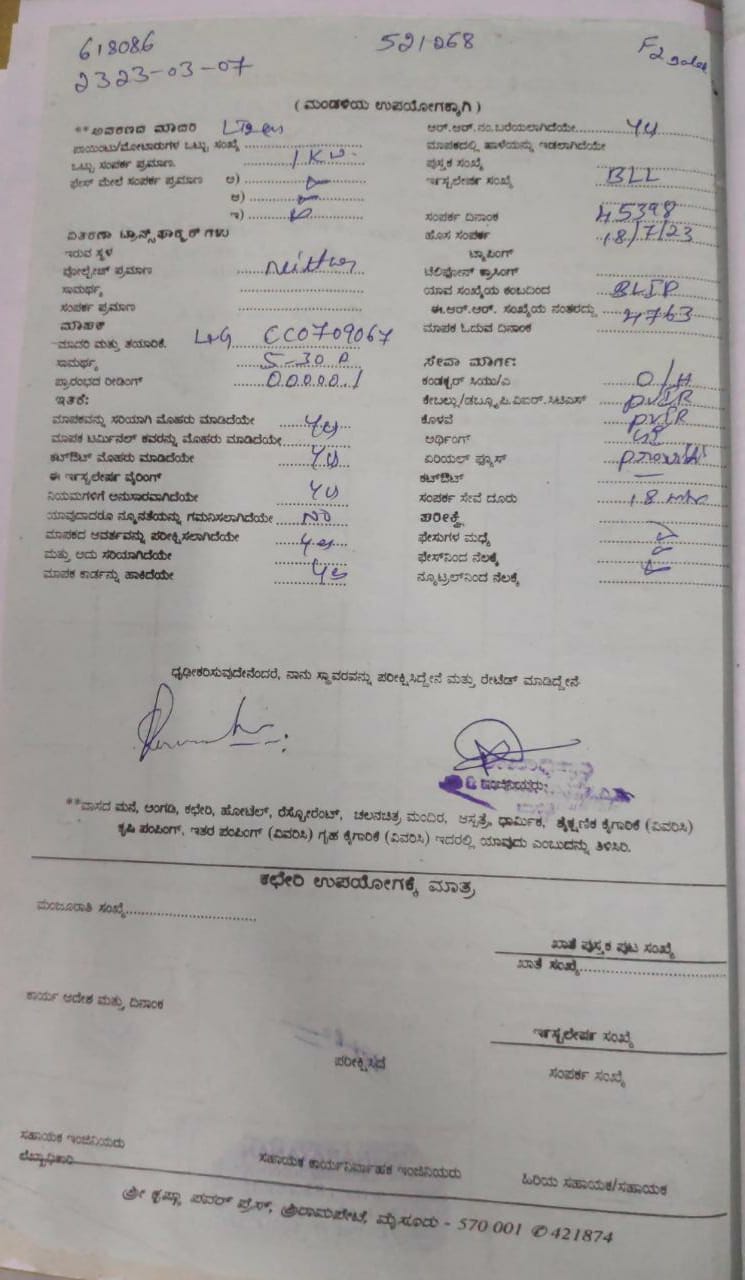 618086 521268
2323-03-07
( ಮಂಡಳಿಯ ಉಪಯೋಗಕ್ಕಾಗಿ )
**ಆವರಣದ ಮಾದರಿ
ಪಾಯಿಂಟು/ಮೋಟಾರುಗಳ ಒಟ್ಟು ಸಂಖ್ಯೆ
ಒಟ್ಟು ಸಂಪರ್ಕ ಪ್ರಮಾಣ. 1 KW
ಫೇಸ್ ಮೇಲೆ ಸಂಪರ್ಕ ಪ್ರಮಾಣ ಅ)
ಆ)
ಇ)
ವಿತರಣಾ ಟ್ರಾನ್ಸ್‌ಫಾರ್ಮರ್‌ಗಳು
ಇರುವ ಸ್ಥಳ
ವೋಲ್ಟೇಜ್ ಪ್ರಮಾಣ
ಸಾಮರ್ಥ್ಯ
ಸಂಪರ್ಕ ಪ್ರಮಾಣ
ಮಾಪಕ
ಮಾದರಿ ಮತ್ತು ತಯಾರಿಕೆ. L+G CC0709067
ಸಾಮರ್ಥ್ಯ 5-30 A
ಪ್ರಾರಂಭದ ರೀಡಿಂಗ್ 00000.1
ಇತರೆ:
ಮಾಪಕವನ್ನು ಸರಿಯಾಗಿ ಮೊಹರು ಮಾಡಿದೆಯೇ Yes
ಮಾಪಕ ಟರ್ಮಿನಲ್ ಕವರನ್ನು ಮೊಹರು ಮಾಡಿದೆಯೇ
ಕಟ್‌ಔಟ್ ಮೊಹರು ಮಾಡಿದೆಯೇ Yes
ಈ ಇನ್ಸ್ಟಲೇಷನ ವೈರಿಂಗ್
ನಿಯಮಗಳಿಗೆ ಅನುಸಾರವಾಗಿದೆಯೇ Yes
ಯಾವುದಾದರೂ ನ್ಯೂನತೆಯನ್ನು ಗಮನಿಸಲಾಗಿದೆಯೇ No
ಮಾಪಕದ ಆವರ್ತವನ್ನು ಪರೀಕ್ಷಿಸಲಾಗಿದೆಯೇ Yes
ಮತ್ತು ಅದು ಸರಿಯಾಗಿದೆಯೇ
ಮಾಪಕ ಕಾರ್ಡನ್ನು ಹಾಕಿದೆಯೇ Yes
ಆರ್.ಆರ್.ನಂ.ಬರೆಯಲಾಗಿದೆಯೇ Yes
ಮಾಪಕದಲ್ಲಿ ಹಾಳೆಯನ್ನು ಇಡಲಾಗಿದೆಯೇ
ಪುಸ್ತಕ ಸಂಖ್ಯೆ
ಇನ್ಸ್ಟಲೇಷನ ಸಂಖ್ಯೆ BLL
45398
ಸಂಪರ್ಕ ದಿನಾಂಕ
ಹೊಸ ಸಂಪರ್ಕ 18/7/23
ಟ್ಯಾಪಿಂಗ್
ಟೆಲಿಫೋನ್ ಕ್ರಾಸಿಂಗ್
ಯಾವ ಸಂಖ್ಯೆಯ ಕಂಬದಿಂದ
ಈ.ಆರ್.ಆರ್. ಸಂಖ್ಯೆಯ ನಂತರದ್ದು 4763
ಮಾಪಕ ಓದುವ ದಿನಾಂಕ
ಸೇವಾ ಮಾರ್ಗ:
ಕಂಡಕ್ಟರ್ ಸಿಯು/ಎ O/H
ಕೇಬಲ್ಲು/ಡಬ್ಲ್ಯೂ.ಪಿ.ವಿಐಆರ್.ಸಿಟಿಎಸ್
ಕೊಳವೆ
ಅರ್ಥಿಂಗ್
ಏರಿಯಲ್ ಫ್ಯೂಸ್
ಕಟ್‌ಔಟ್
ಸಂಪರ್ಕ ಸೇವೆ ದೂರು
ಪರೀಕ್ಷೆ
ಫೇಸುಗಳ ಮಧ್ಯೆ
ಫೇಸ್‌ನಿಂದ ನೆಲಕ್ಕೆ
ನ್ಯೂಟ್ರಲ್‌ನಿಂದ ನೆಲಕ್ಕೆ
ಧೃಢೀಕರಿಸುವುದೇನೆಂದರೆ, ನಾನು ಸ್ಥಾವರವನ್ನು ಪರೀಕ್ಷಿಸಿದ್ದೇನೆ ಮತ್ತು ರೇಟೆಡ್ ಮಾಡಿದ್ದೇನೆ
ಇಂಜಿನಿಯರು
**ವಾಸದ ಮನೆ, ಅಂಗಡಿ, ಕಛೇರಿ, ಹೋಟೆಲ್, ರೆಸ್ಟೋರೆಂಟ್, ಚಲನಚಿತ್ರ ಮಂದಿರ, ಆಸ್ಪತ್ರೆ, ಧಾರ್ಮಿಕ, ಶೈಕ್ಷಣಿಕ ಕೈಗಾರಿಕೆ (ವಿವರಿಸಿ)
ಕೃಷಿ ಪಂಪಿಂಗ್, ಇತರ ಪಂಪಿಂಗ್ (ವಿವರಿಸಿ) ಗೃಹ ಕೈಗಾರಿಕೆ (ವಿವರಿಸಿ) ಇದರಲ್ಲಿ ಯಾವುದು ಎಂಬುದನ್ನು ತಿಳಿಸಿರಿ.
ಕಛೇರಿ ಉಪಯೋಗಕ್ಕೆ ಮಾತ್ರ
ಮಂಜೂರಾತಿ ಸಂಖ್ಯೆ
ಖಾತೆ ಪುಸ್ತಕ ಪುಟ ಸಂಖ್ಯೆ
ಖಾತೆ ಸಂಖ್ಯೆ
ಕಾರ್ಯ ಆದೇಶ ಮತ್ತು ದಿನಾಂಕ
ಇನ್ಸ್ಟಲೇಷನ ಸಂಖ್ಯೆ
ಪರೀಕ್ಷಿಸಿದ
ಸಂಪರ್ಕ ಸಂಖ್ಯೆ
ಸಹಾಯಕ ಇಂಜಿನಿಯರು
ಲೆಖ್ಖಾಧಿಕಾರಿ
ಸಹಾಯಕ ಕಾರ್ಯನಿರ್ವಾಹಕ ಇಂಜಿನಿಯರು
ಹಿರಿಯ ಸಹಾಯಕ/ಸಹಾಯಕ
ಶ್ರೀ ಕೃಷ್ಣಾ ಪವರ್ ಪ್ರೆಸ್, ಶ್ರೀರಾಮಪೇಟೆ, ಮೈಸೂರು - 570 001 ✆ 421874